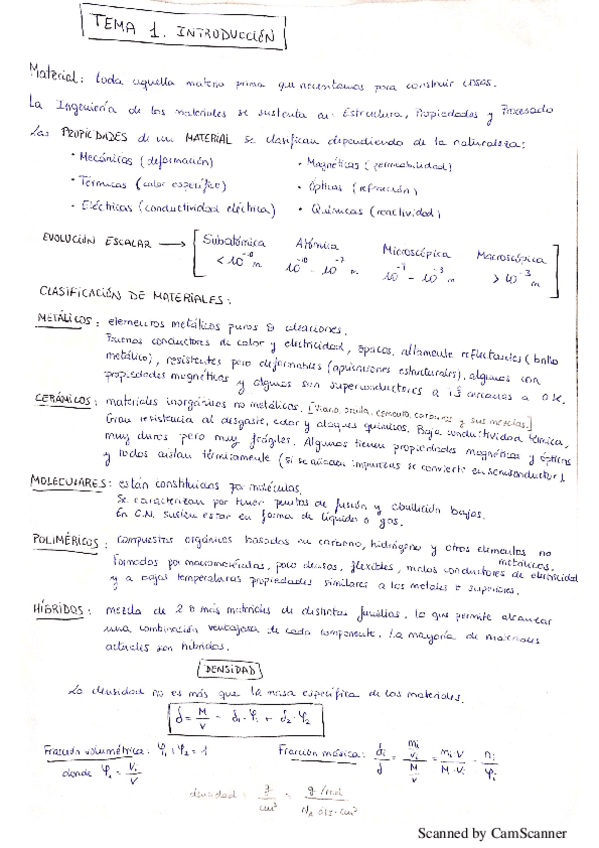 TEMA 1. INTRODUCCIÓN
Material: toda aquella materia prima que necesitamos para construir cosas.
La Ingeniería de los materiales se sustenta en: Estructura, Propiedades y Procesado
Las PROPIEDADES de un MATERIAL se clasifican dependiendo de la naturaleza:
· Mecánicas (deformación) · Magnéticas (permeabilidad)
· Térmicas (calor específico) · Ópticas (refracción)
· Eléctricas (conductividad eléctrica) · Químicas (reactividad)
EVOLUCIÓN ESCALAR → [Subatómica Atómica Microscópica Macroscópica
< 10⁻¹⁰ m 10⁻¹⁰ - 10⁻⁷ m 10⁻⁷ - 10⁻³ m > 10⁻³ m]
CLASIFICACIÓN DE MATERIALES:
METÁLICOS: elementos metálicos puros o aleaciones.
Buenos conductores de calor y electricidad, opacos, altamente reflectantes (brillo
metálico), resistentes pero deformables (aplicaciones estructurales), algunos con
propiedades magnéticas y algunos son superconductores a cercanas a 0 K.
CERÁMICOS: materiales inorgánicos no metálicos. [arcilla, cemento, carburos y sus mezclas.]
Gran resistencia al desgaste, calor y ataques químicos. Baja conductividad térmica,
muy duros pero muy frágiles. Algunos tienen propiedades magnéticas y ópticas
y todos aislan térmicamente (si se añaden impurezas se convierte en semiconductor).
MOLECULARES: están constituidos por moléculas.
Se caracterizan por tener puntos de fusión y ebullición bajos.
En C.N. suelen estar en forma de líquido o gas.
POLIMÉRICOS: compuestos orgánicos basados en carbono, hidrógeno y otros elementos no
metálicos.
Formados por macromoléculas, poco densos, flexibles, malos conductores de electricidad
y a bajas temperaturas propiedades similares a los metales o superiores.
HÍBRIDOS: mezcla de 2 o más materiales de distintas familias, lo que permite alcanzar
una combinación ventajosa de cada componente. La mayoría de materiales
actuales son híbridos.
DENSIDAD
La densidad no es más que la masa específica de los materiales.
δ = M/V = δ₁·φ₁ + δ₂·φ₂
Fracción volumétrica: φ₁ + φ₂ = 1 Fracción másica: δi/δ = (mi/vi)/(M/V) = mi·V/M·Vi = ni/φi
donde φi = Vi/V
densidad = g/cm³ = g/mol
Scanned by CamScanner